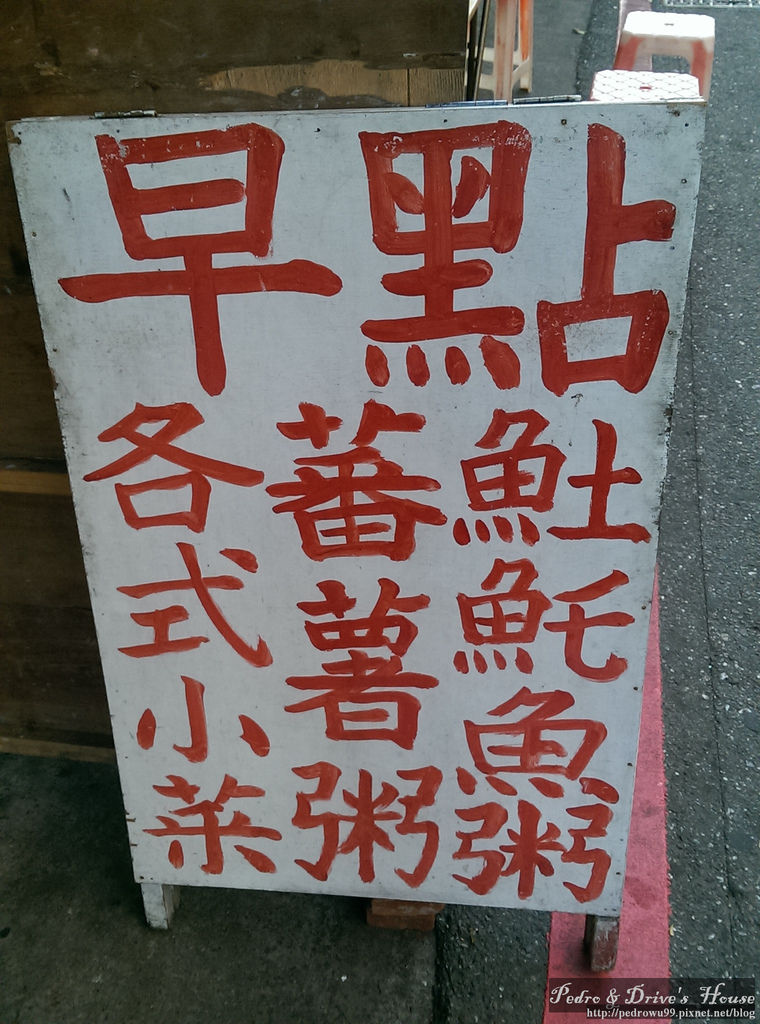 早點
魠魠魚粥
蕃薯粥
各式小菜
Pedro & Drive's House
http://pedrowu99.pixnet.net/blog